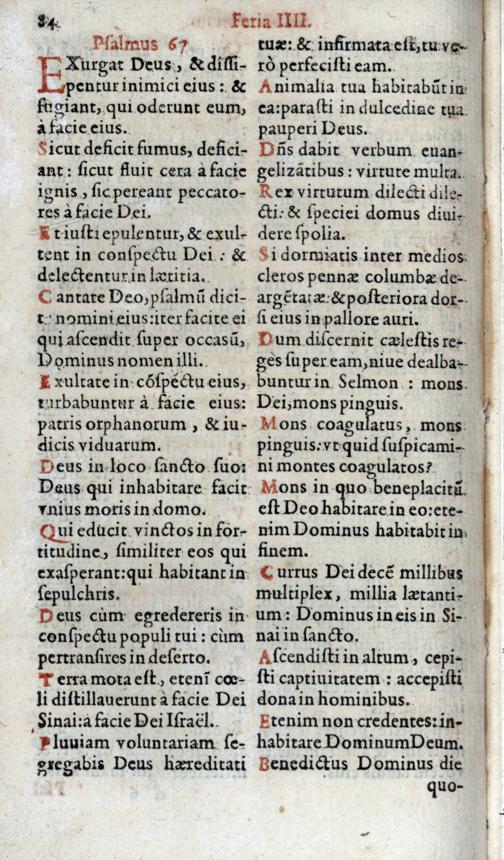 84 Feria IIII.
Psalmus 67
EXurgat Deus, & dissi-
pentur inimici eius: &
fugiant, qui oderunt eum,
à facie eius.
Sicut deficit fumus, defici-
ant: sicut fluit cera à facie
ignis, sic pereant peccato-
res à facie Dei.
Et iusti epulentur, & exul-
tent in conspectu Dei: &
delectentur in lætitia.
Cantate Deo, psalmū dici-
te nomini eius: iter facite ei
qui ascendit super occasū,
Dominus nomen illi.
Exultate in cōspectu eius,
turbabuntur à facie eius:
patris orphanorum, & iu-
dicis viduarum.
Deus in loco sancto suo:
Deus qui inhabitare facit
vnius moris in domo.
Qui educit vinctos in for-
titudine, similiter eos qui
exasperant: qui habitant in
sepulchris.
Deus cùm egredereris in
conspectu populi tui: cùm
pertransires in deserto.
Terra mota est, etenī cœ-
li distillauerunt à facie Dei
Sinai: à facie Dei Israël.
Pluuiam voluntariam se-
gregabis Deus hæreditati
tuæ: & infirmata est, tu ve-
rò perfecisti eam.
Animalia tua habitabūt in
ea: parasti in dulcedine tua
pauperi Deus.
Dñs dabit verbum euan-
gelizātibus: virtute multa.
Rex virtutum dilecti dile-
cti: & speciei domus diui-
dere spolia.
Si dormiatis inter medios
cleros pennæ columbæ de-
argētatæ: & posteriora dor-
si eius in pallore auri.
Dum discernit cælestis re-
ges super eam, niue dealba-
buntur in Selmon: mons
Dei, mons pinguis.
Mons coagulatus, mons
pinguis: vt quid suspicami-
ni montes coagulatos?
Mons in quo beneplacitū
est Deo habitare in eo: ete-
nim Dominus habitabit in
finem.
Currus Dei decē millibus
multiplex, millia lætanti-
um: Dominus in eis in Si-
nai in sancto.
Ascendisti in altum, cepi-
sti captiuitatem: accepisti
dona in hominibus.
Etenim non credentes: in-
habitare Dominum Deum.
Benedictus Dominus die
quo-